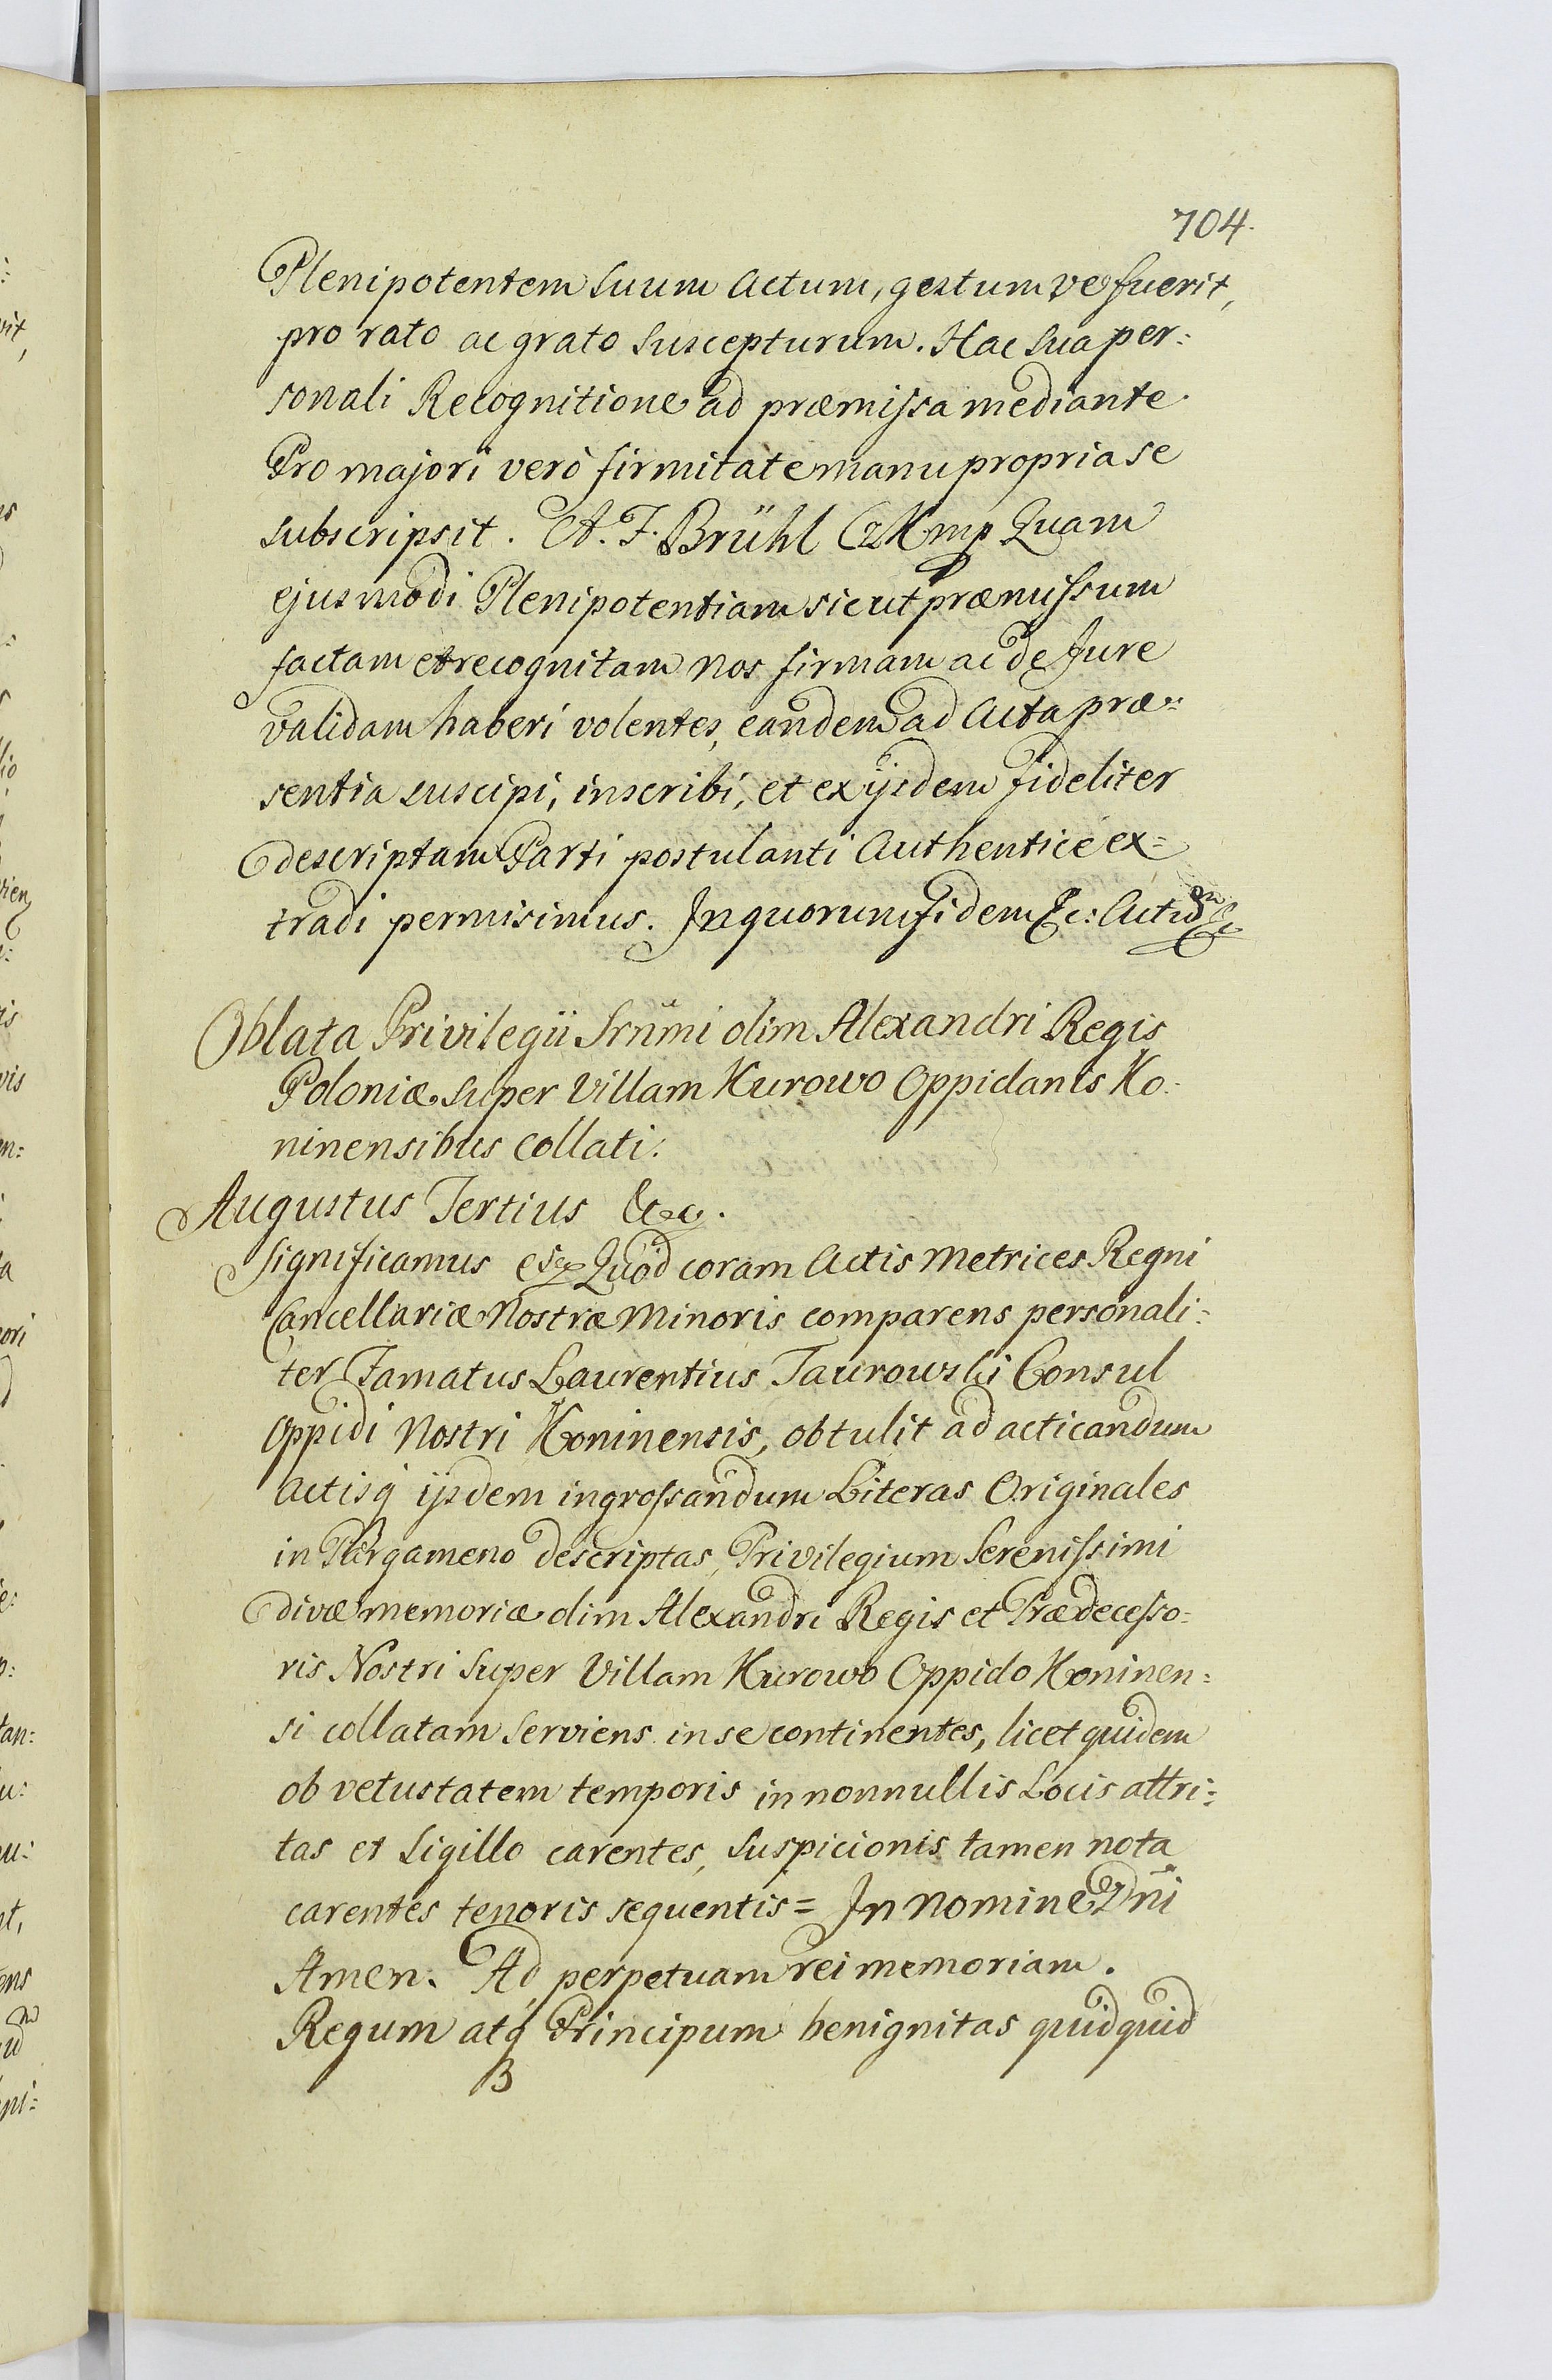 704.
Plenipotentem suum actum, gestum ve fuerit,
pro rato ac grato suscepturum. Hac sua per:
sonali Recognitione ad præmissa mediante.
Pro majori verò firmitate manu propria se
subscripsit. A. F. Brühl CzK mp Quam
ejusmodi Plenipotentiam sicut præmissum
factam et recognitam nos firmam ac de Jure
validam haberi volentes, eandem ad Acta præ:
sentia suscipi, inscribi, et ex ijsdem fideliter
descriptam Parti postulanti Authenticè ex=
tradi permisimus. In quorum fidem &c: Actum &c
Oblata Privilegii Srnmi olim Alexandri Regis
Poloniæ super Villam Kurowo Oppidanis Ko:
ninensibus collati.
Augustus Tertius &c.
Significamus Quod coram Actis Metrices Regni
Cancellariæ Nostræ Minoris comparens personali:
ter Famatus Laurentius Taurowski Consul
Oppidi Nostri Koninensis, obtulit ad acticandum
Actisq ijsdem ingrossandum Literas Originales
in Pergameno descriptas, Privilegium Serenissimi
divæ memoriæ olim Alexandri Regis et Prædecesso:
ris Nostri super Villam Kurowo Oppido Koninen:
si collatam serviens in se continentes, licet quidem
ob vetustatem temporis in nonnullis Locis attri:
tas et Sigillo carentes, suspicionis tamen nota
carentes tenoris sequentis = In Nomine Dñi
Amen. Ad perpetuam rei memoriam.
Regum atq Principum benignitas quidquid
B